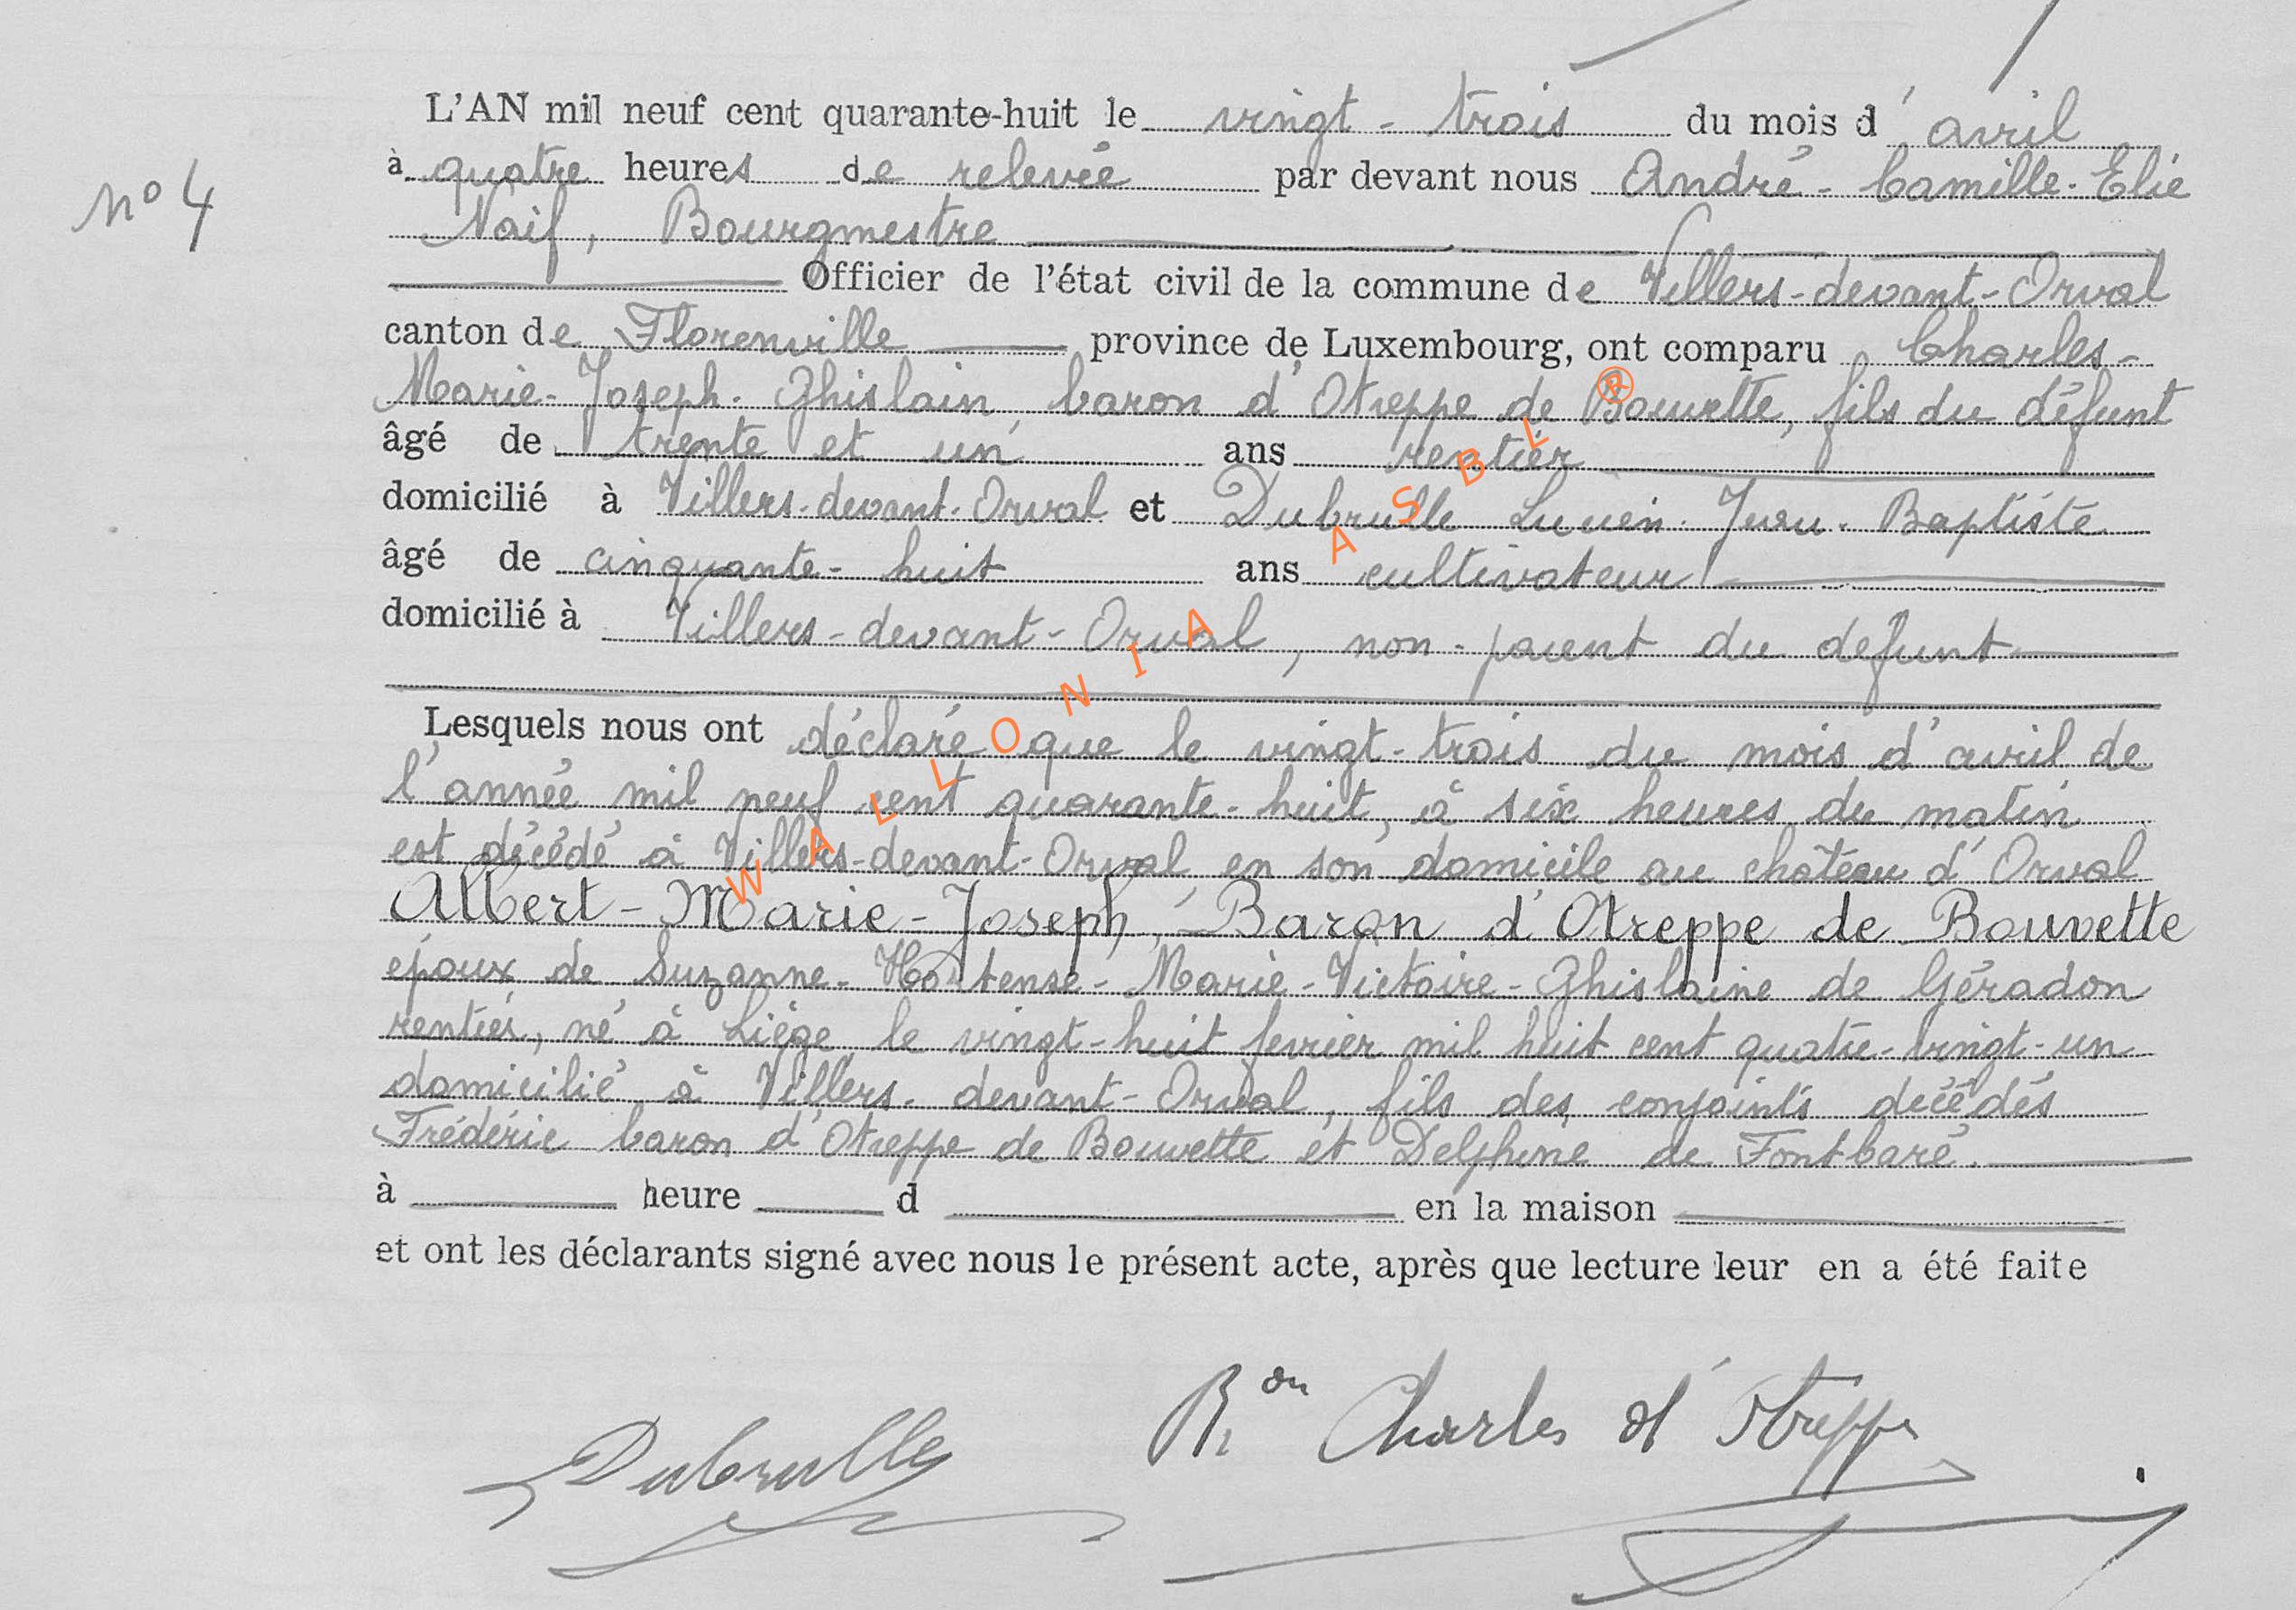 L'AN mil neuf cent quarante-huit le vingt-trois du mois d'avril
à quatre heures de relevée par devant nous André-Camille-Elie
N° 4
Naif, Bourgmestre
Officier de l'état civil de la commune de Villers-devant-Orval
canton de Florenville province de Luxembourg, ont comparu Charles-
Marie-Joseph-Ghislain baron d'Otreppe de Bouvette, fils du défunt
âgé de trente et un ans rentier
domicilié à Villers-devant-Orval et Dubrulle Lucien- Baptiste
âgé de cinquante-huit ans cultivateur
domicilié à Villers-devant-Orval, non-parent du defunt
Lesquels nous ont déclaré que le vingt-trois du mois d'avril de
l'année mil neuf cent quarante-huit, à six heures du matin
est décédé à Villers-devant-Orval en son domicile au château d'Orval
Albert-Marie-Joseph, Baron d'Otreppe de Bouvette
époux de Suzanne-Hortense-Marie-Victoire-Ghislaine de Géradon
rentier, né à Liège le vingt-huit fevrier mil huit cent quatre-vingt-un
domicilié à Villers-devant-Orval, fils des conjoints décédés
Frédéric baron d'Otreppe de Bouvette et Delphine de Fontbaré.
à heure d en la maison
et ont les déclarants signé avec nous le présent acte, après que lecture leur en a été faite
Dubrulle
Bon Charles d'Otreppe
WALLONIA ASBL ®